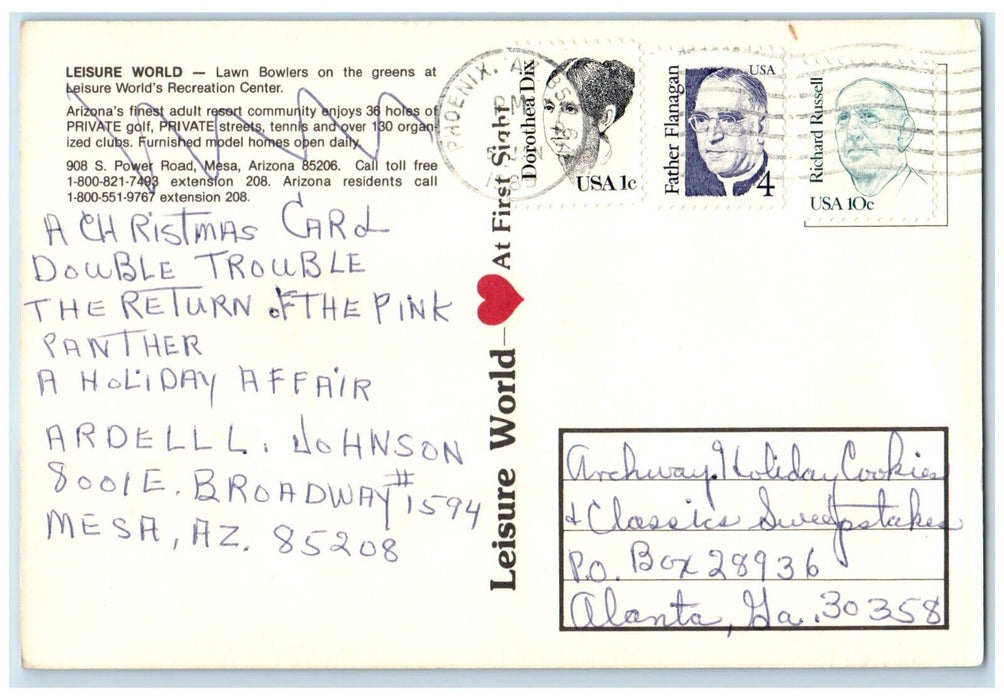 LEISURE WORLD — Lawn Bowlers on the greens at
Leisure World's Recreation Center.
Arizona's finest adult resort community enjoys 36 holes of
PRIVATE golf, PRIVATE streets, tennis and over 130 organ-
ized clubs. Furnished model homes open daily.
908 S. Power Road, Mesa, Arizona 85206. Call toll free
1-800-821-7493 extension 208. Arizona residents call
1-800-551-9767 extension 208.
A CHRISTMAS CARD
DOUBLE TROUBLE
THE RETURN OF THE PINK
PANTHER
A HOLIDAY AFFAIR
ARDELL L. JOHNSON
8001 E. BROADWAY #1594
MESA, AZ. 85208
Leisure World — At First Sight
PHOENIX, AZ
PM
Dorothea Dix
USA 1c
Father Flanagan
USA
4
Richard Russell
USA 10c
Archway Holiday Cookies
& Classics Sweepstakes
P.O. Box 28936
Alanta, Ga. 30358